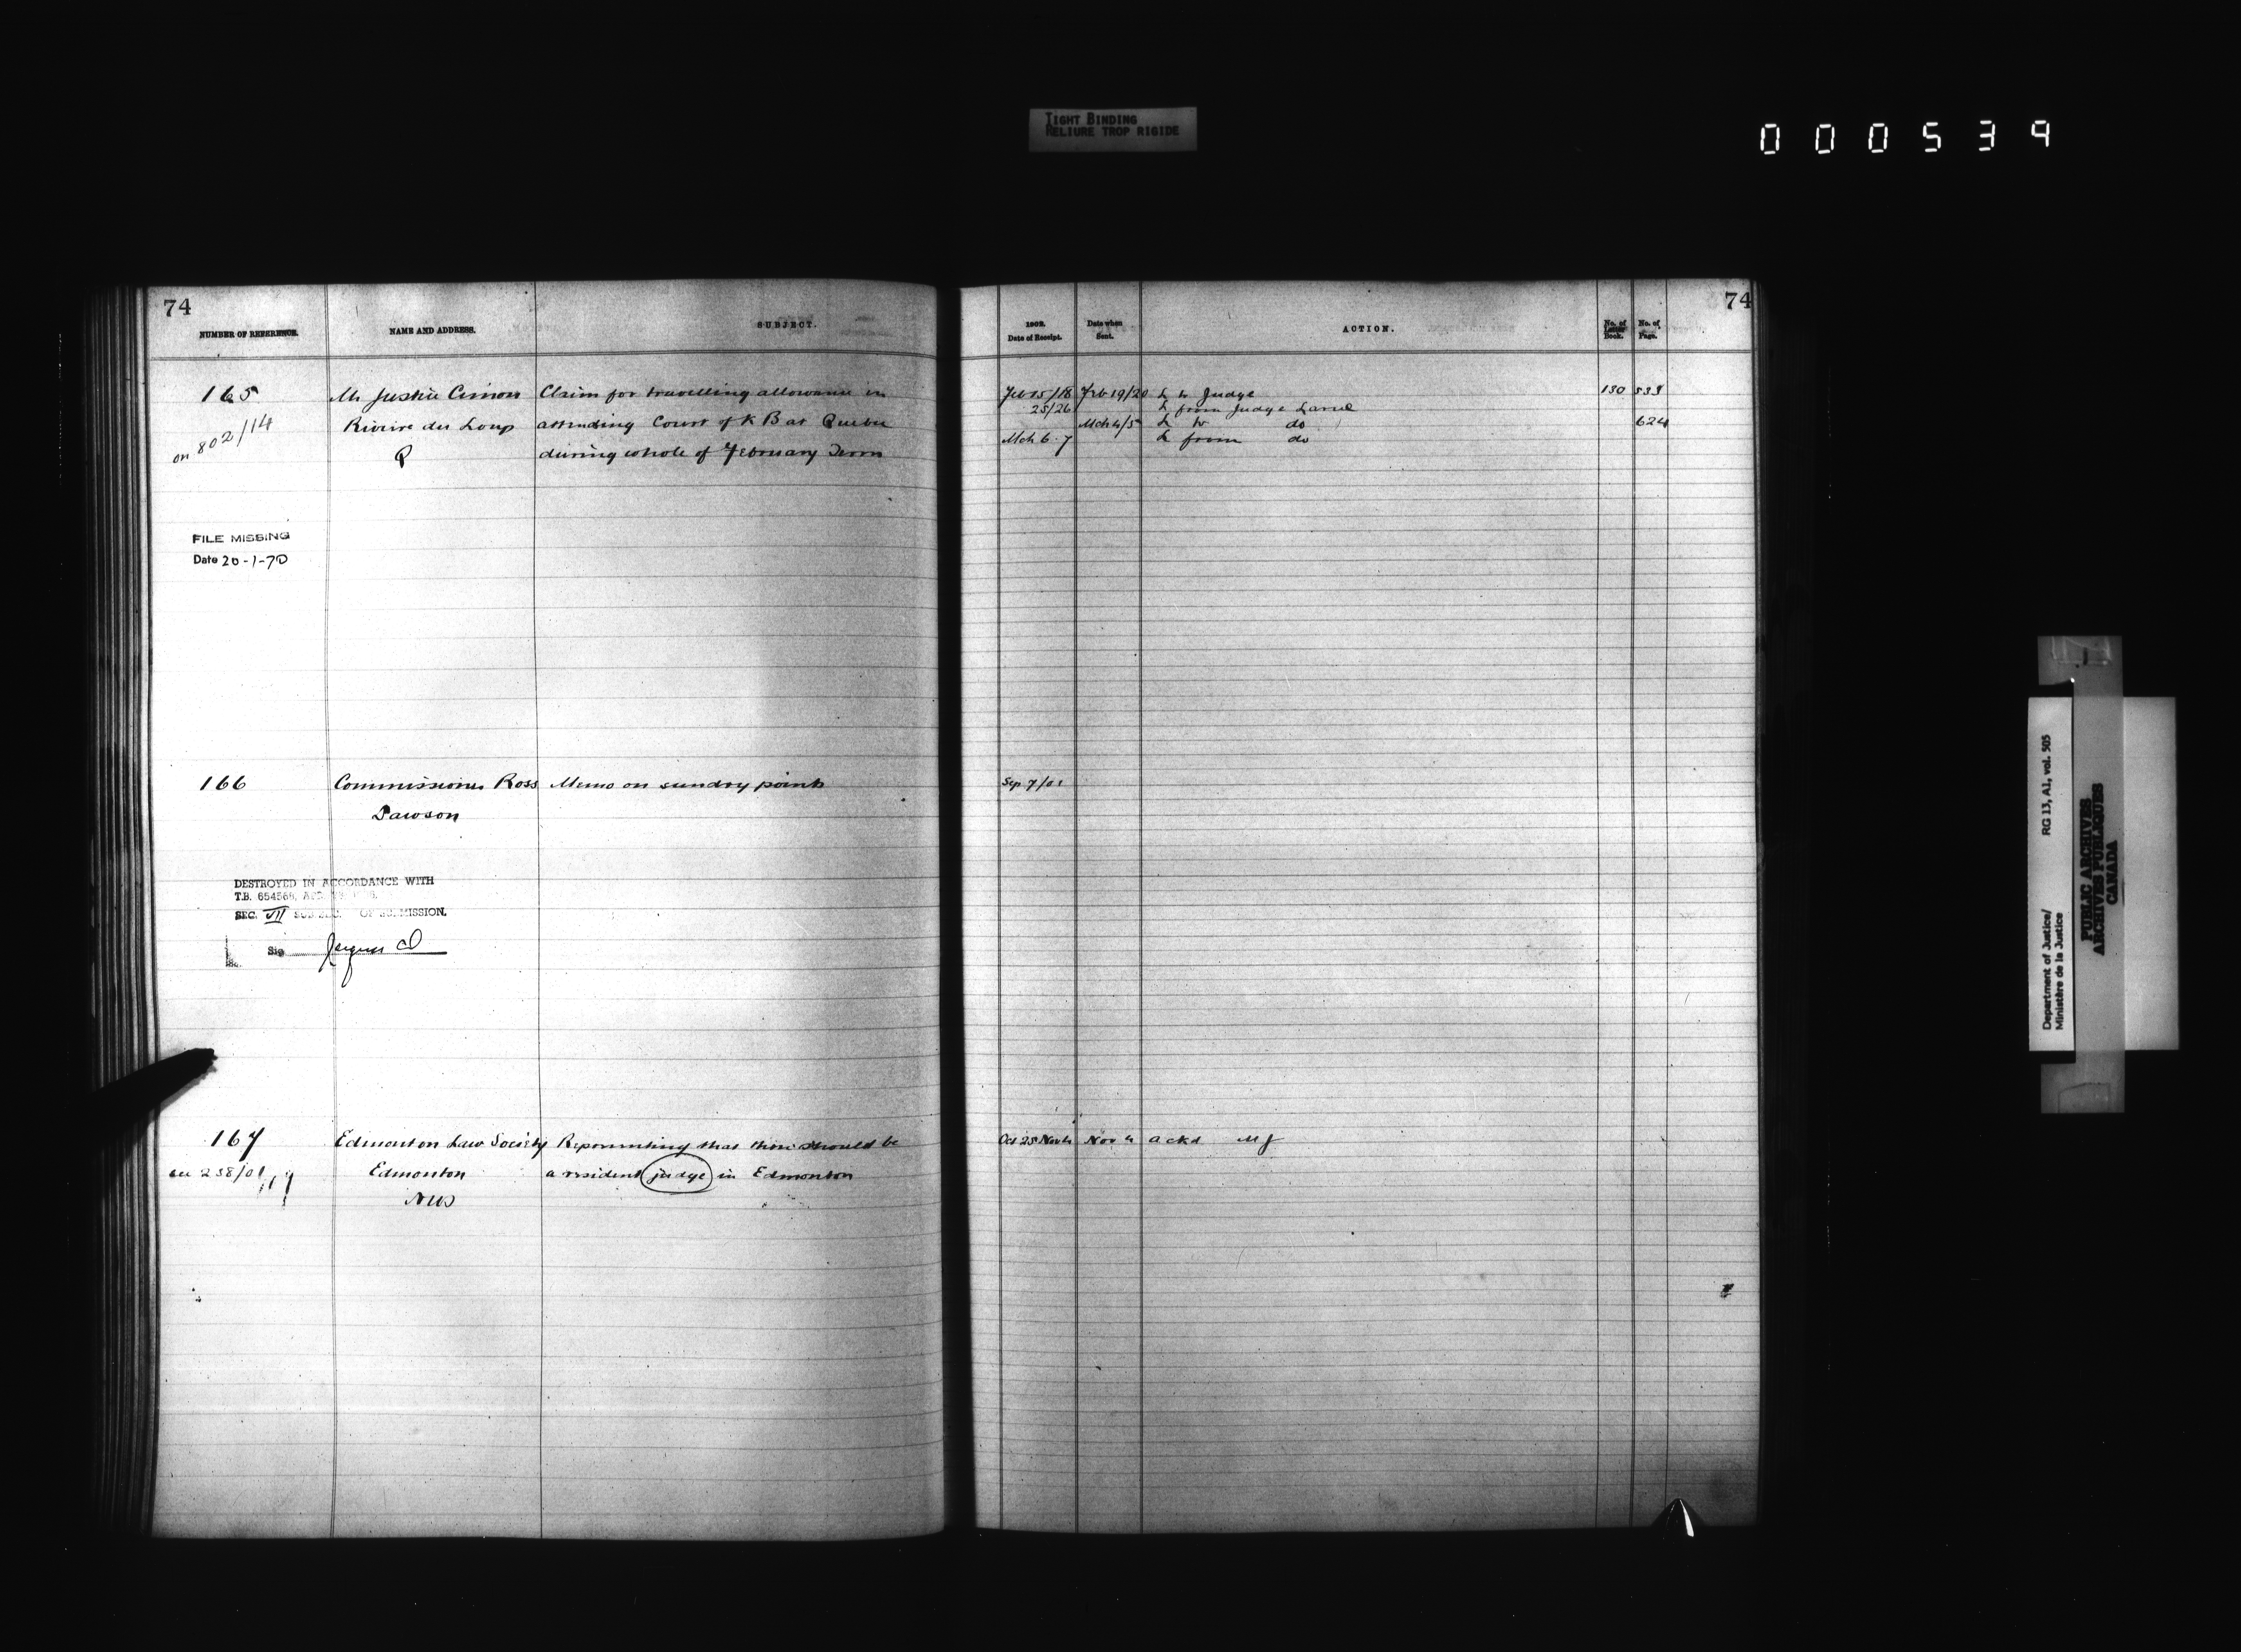 TIGHT BINDING
RELIURE TROP RIGIDE
000539
74
NUMBER OF REFERENCE.
NAME AND ADDRESS.
SUBJECT.
165
on 802/14
Mr Justice Cimon
Riviere du Loup
Q
Claim for travelling allowance in
attending Court of K B at Quebec
during whole of February Term
FILE MISSING
Date 20-1-70
166
Commissioner Ross
Dawson
Memo on sundry points
DESTROYED IN ACCORDANCE WITH
T.B. 654568,
SEC. VII SUB SEC. OF SUBMISSION.
Sig
167
238/01
Edmonton Law Society
Edmonton
NW
Representing that there should be
a resident judge in Edmonton
74
1902.
Date of Receipt.
Date when
Sent.
ACTION.
No. of
Letter
Book.
No. of
Page.
Feb 15/18 Feb 19/20 L to Judge 130 533
25/26 L from Judge Larue
Mch 4/5 L to do 624
Mch 6.7 L from do
Sep 7/01
Oct 25 Nov 4 Nov 4 ackd MJ
Department of Justice/
Ministère de la Justice
RG 13, A1, vol. 505
PUBLIC ARCHIVES
ARCHIVES PUBLIQUES
CANADA